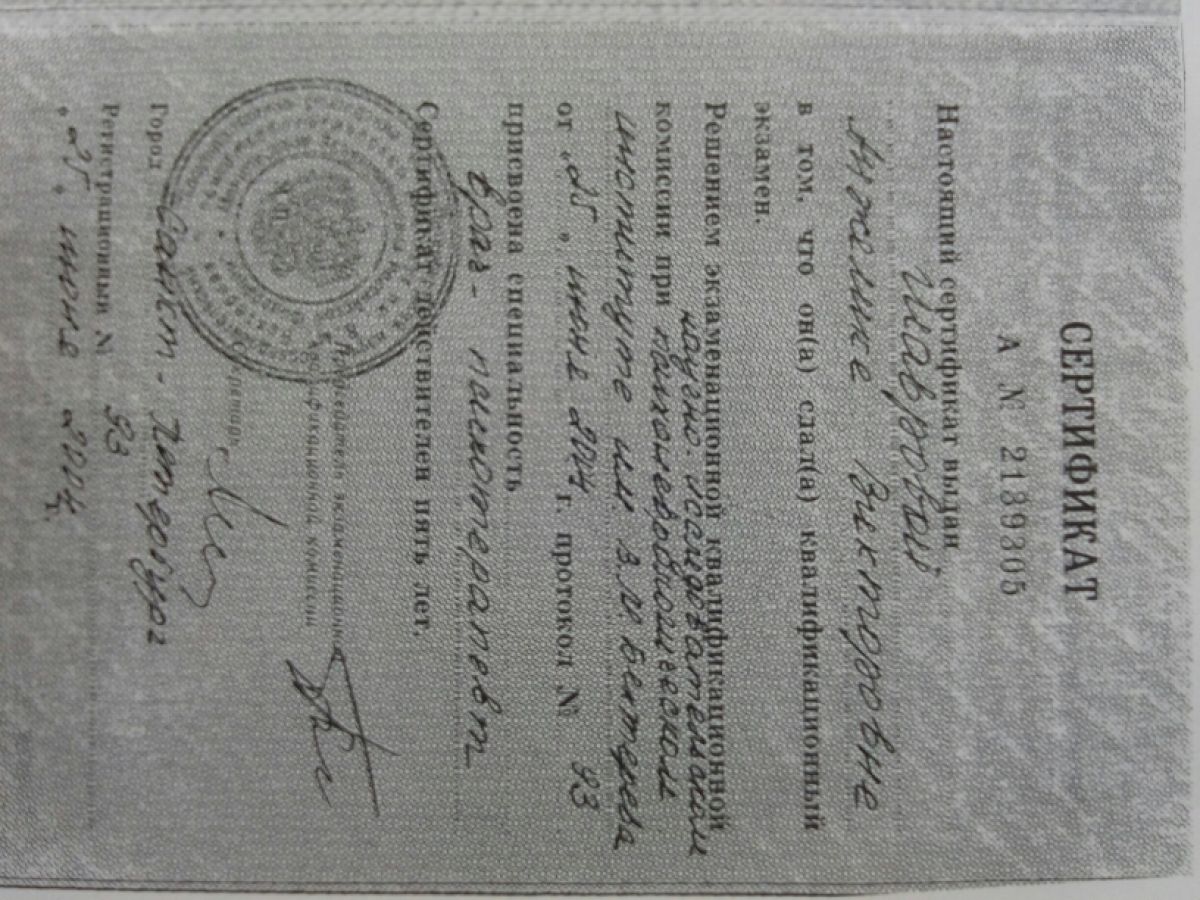 СЕРТИФИКАТ
А № 2189305
Настоящий сертификат выдан
Шавровой
Анжелике Викторовне
в том, что он(а) сдал(а) квалификационный
экзамен.
Решением экзаменационной квалификационной
научно-исследовательском
комиссии при психоневрологическом
институте им В.М Бехтерева
от „25„ июня 2004 г. протокол № 93
присвоена специальность
врач-
Сертификат действителен пять лет.
Председатель экзаменационной
квалификационной комиссии
Город Санкт-Петербург
Регистрационный № 93
„25„ июня 2004 г.